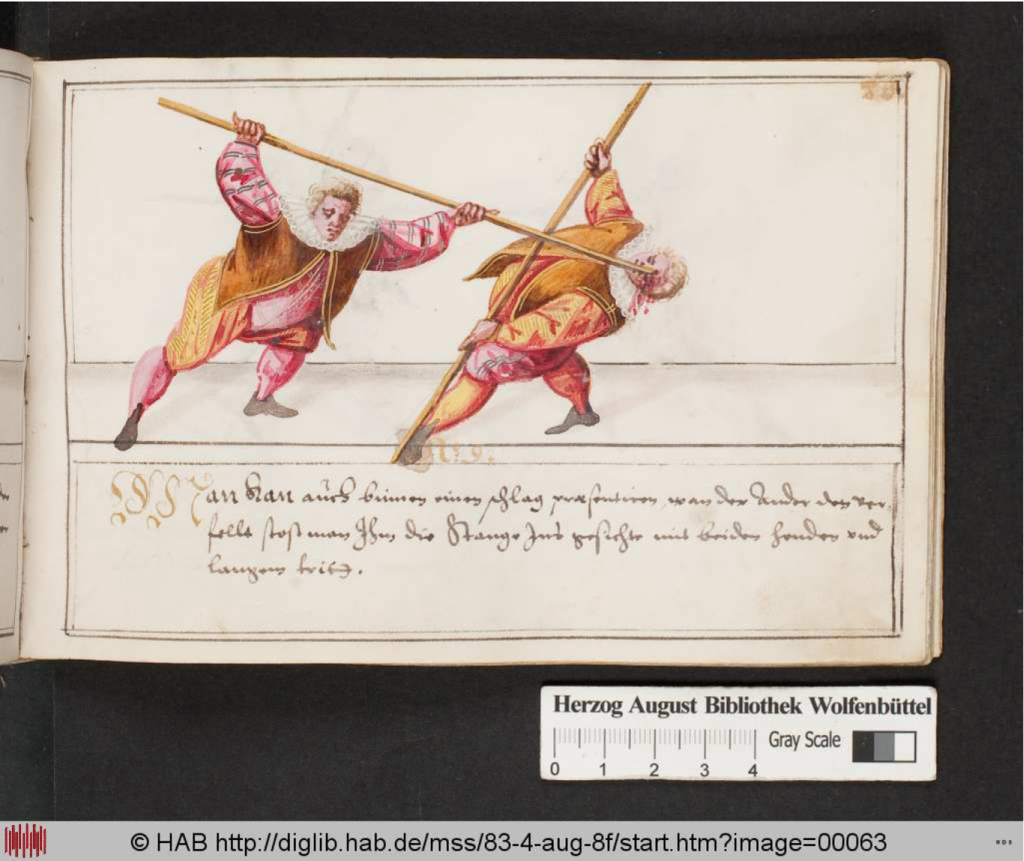 N: 9.
Man kan auch binnen einen schlag præsentiren, wan der Ander den ver-
fellt stost man Ihm die Stange Ins gesichte mit beiden henden vnd
langem tritt.
Herzog August Bibliothek Wolfenbüttel
Gray Scale
0 1 2 3 4
© HAB http://diglib.hab.de/mss/83-4-aug-8f/start.htm?image=00063